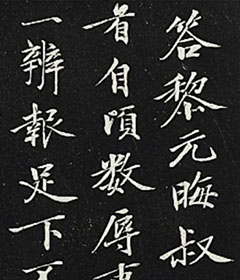 答黎元晦叔
者自頃数辱
一辨報足下